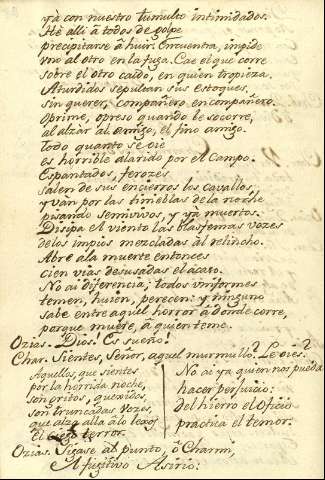 yà con nuestro tumulto intimidados.
He alli à todos de golpe
precipitarse à huir. Encuentra, impide
vno al otro en la fuga. Cae el que corre
sobre el otro caido, en quien tropieza.
Aturdidos sepultan sus estoques,
sin querer, compañero en compañero.
Oprime, opreso quando le socorre,
al alzar al amigo, el fino amigo.
Todo quanto se oie
es horrible alarido por el Campo.
Espantados, ferozes
salen de sus encierros los cavallos,
y van por las tinieblas de la noche
pisando semivivos, y yà muertos.
Disipa el viento las blasfemas vozes
de los impios mezcladas àl relincho.
Abre à la muerte entonces
cien vias desusadas el acaso.
No ai diferencia; todos vniformes
temen, huien, perecen: y ninguno
sabe entre aquel horror à donde corre,
porque muere, à quien teme.
Ozias. Dios! Es sueño!
Char. Sientes, Señor, aquel murmullo? Le oies?
Aquellos, que sientes
por la horrida noche,
son gritos, quexidos,
son truncadas vozes,
que alza alla à lo lexos
El ciego terror.
No ai ya quien nos pueda
hacer perjuicio:
del hierro el Oficio
practica el temor.
Ozias. Sigase al punto, ò Charmi,
Al fugitivo Asirio: